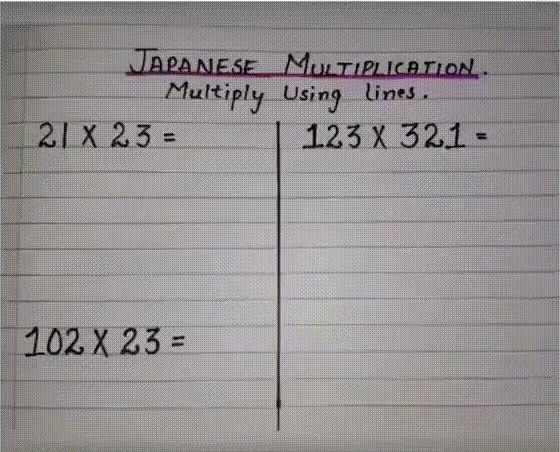 JAPANESE MULTIPLICATION.
Multiply Using lines.
21 X 23 =
123 X 321 =
102 X 23 =